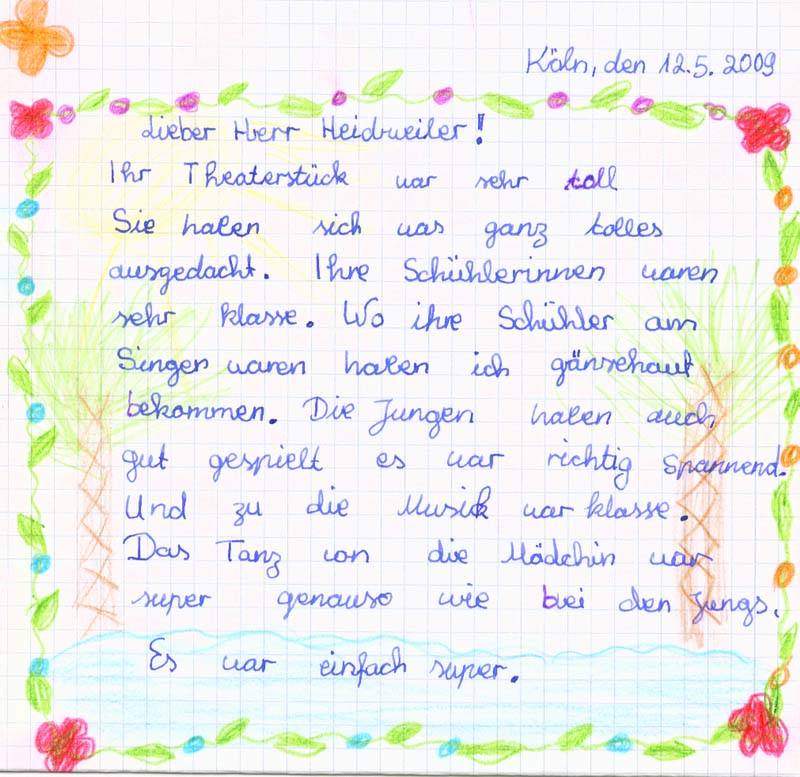 Köln, den 12.5. 2009
Lieber Herr Heidweiler!
Ihr Theaterstück war sehr toll
Sie haben sich was ganz tolles
ausgedacht. Ihre Schühlerinnen waren
sehr klasse. Wo ihre Schühler am
Singen waren haben ich gänsehaut
bekommen. Die Jungen haben auch
gut gespielt es war richtig spannend.
Und zu die Musick war klasse.
Das Tanz von die Mädchin war
super genauso wie bei den Jungs.
Es war einfach super.